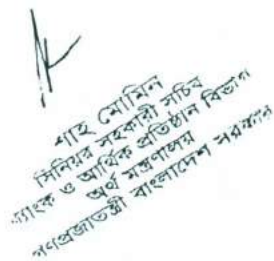 শাহ মোমিন
সিনিয়র সহকারী সচিব
ব্যাংক ও আর্থিক প্রতিষ্ঠান বিভাগ
অর্থ মন্ত্রণালয়
গণপ্রজাতন্ত্রী বাংলাদেশ সরকার